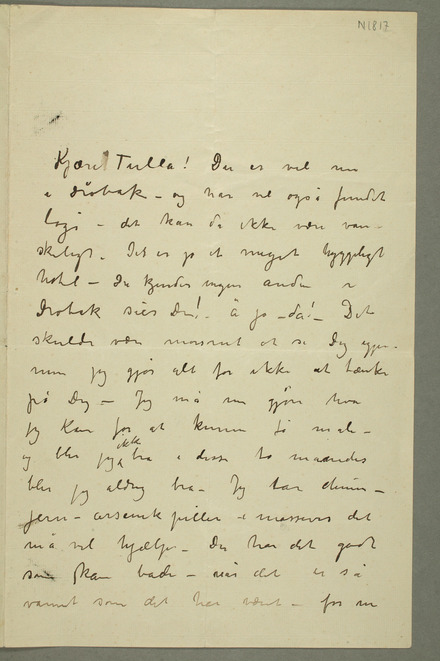 N 1817
Kjære Tulla! Du er vel nu
i Drøbak – og har vel også fundet
logi – det kan da ikke være van-
skeligt. Det er jo et meget hyggeligt
hotel – Du kjender ingen anden i
Drøbak sier Du! – Å jo – da! – Det
skulde være morsomt at se Dig igjen –
men jeg gjør alt for ikke at tænke
på Dig – Jeg må nu gjøre hva
jeg kan for at kunne få male –
og blir jeg ikke bra i disse to maaneder
blir jeg aldrig bra – Jeg tar
jern – arsenik piller i massevis det
må vel hjælpe – Du har det godt
som kan bade – når det er så
varmt som det har været – for nu